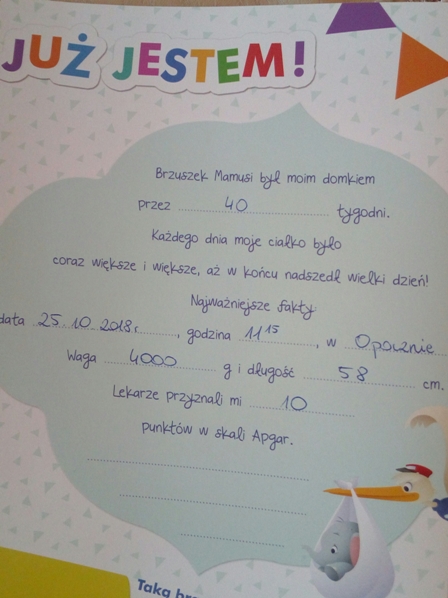 JUŻ JESTEM!
Brzuszek Mamusi był moim domkiem
przez 40 tygodni.
Każdego dnia moje ciałko było
coraz większe i większe, aż w końcu nadszedł wielki dzień!
Najważniejsze fakty
data 25.10.2018r., godzina 11¹⁵, w Opocznie
Waga 4000 g i długość 58 cm.
Lekarze przyznali mi 10
punktów w skali Apgar.
Taką